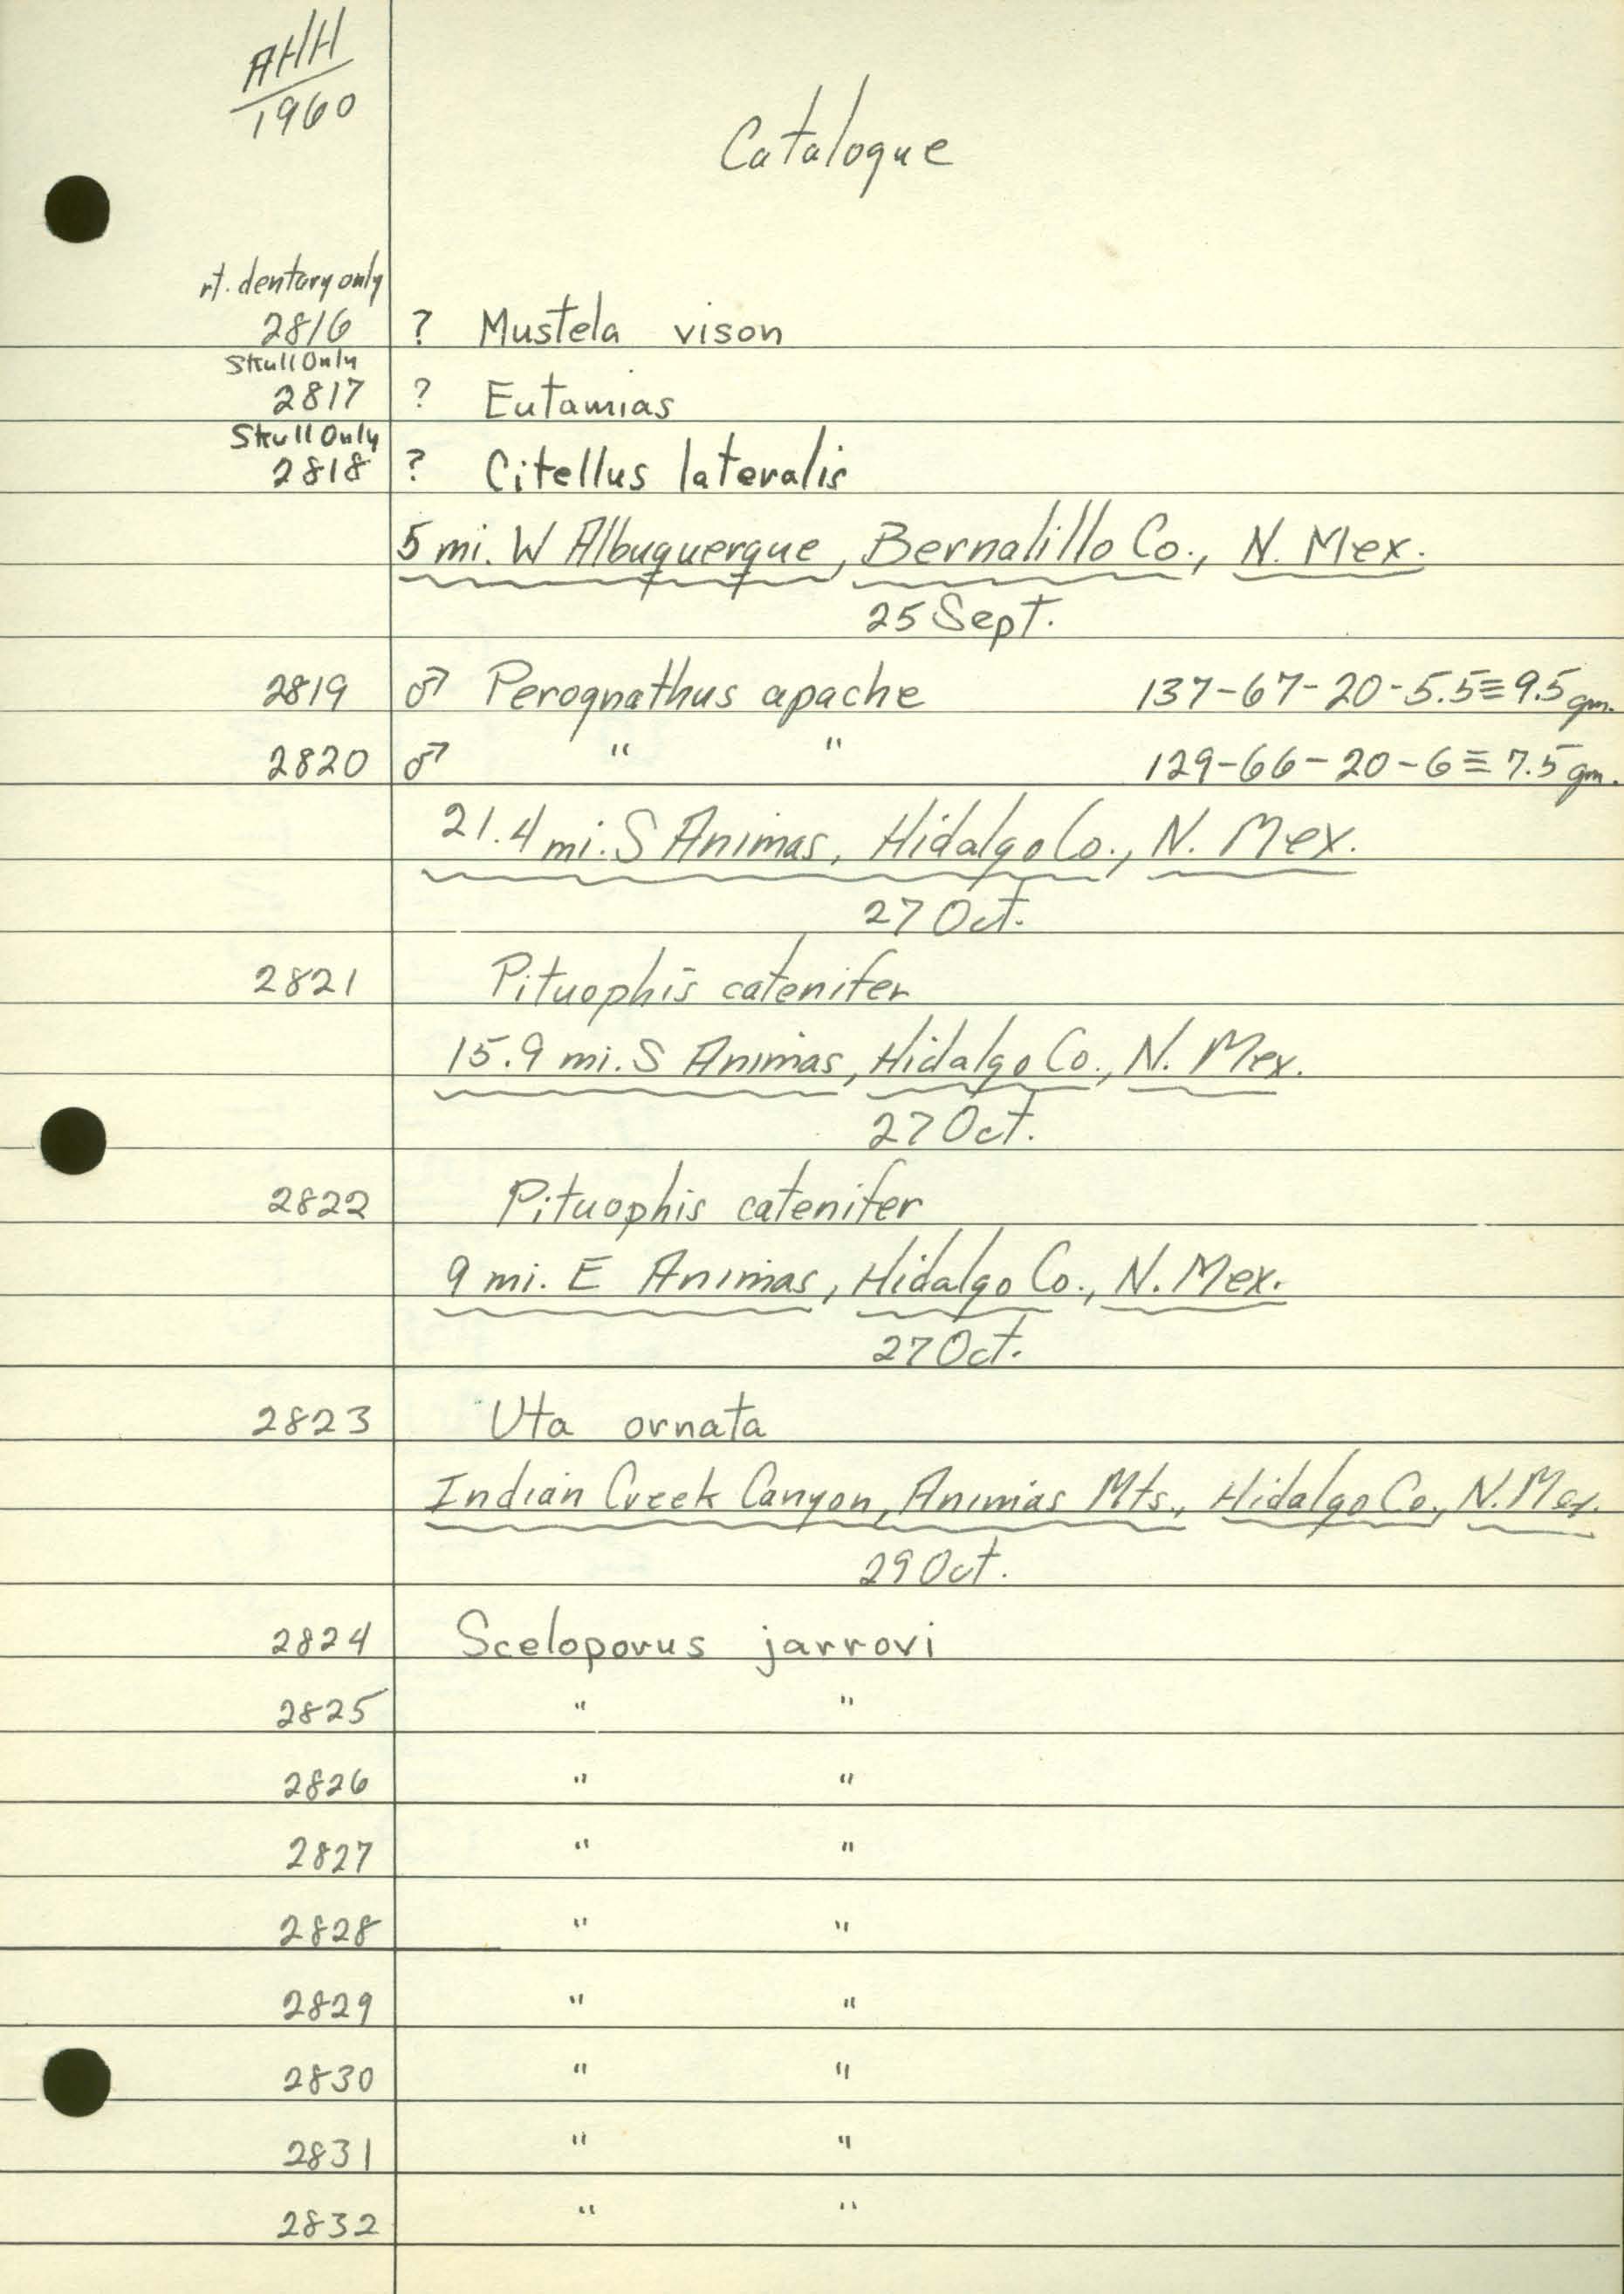 AHH
1960
Catalogue
rt. dentary only
2816 ? Mustela vison
Skull Only
2817 ? Eutamias
Skull Only
2818 ? Citellus lateralis
5 mi. W Albuquerque, Bernalillo Co., N. Mex.
25 Sept.
2819 ♂ Perognathus apache 137-67-20-5.5≡9.5 gm.
2820 ♂ " " 129-66-20-6≡7.5 gm.
21.4 mi. S Animas, Hidalgo Co., N. Mex.
27 Oct.
2821 Pituophis catenifer
15.9 mi. S Animas, Hidalgo Co., N. Mex.
27 Oct.
2822 Pituophis catenifer
9 mi. E Animas, Hidalgo Co., N. Mex.
27 Oct.
2823 Uta ornata
Indian Creek Canyon, Animas Mts., Hidalgo Co., N. Mex.
29 Oct.
2824 Sceloporus jarrovi
2825 " "
2826 " "
2827 " "
2828 " "
2829 " "
2830 " "
2831 " "
2832 " "